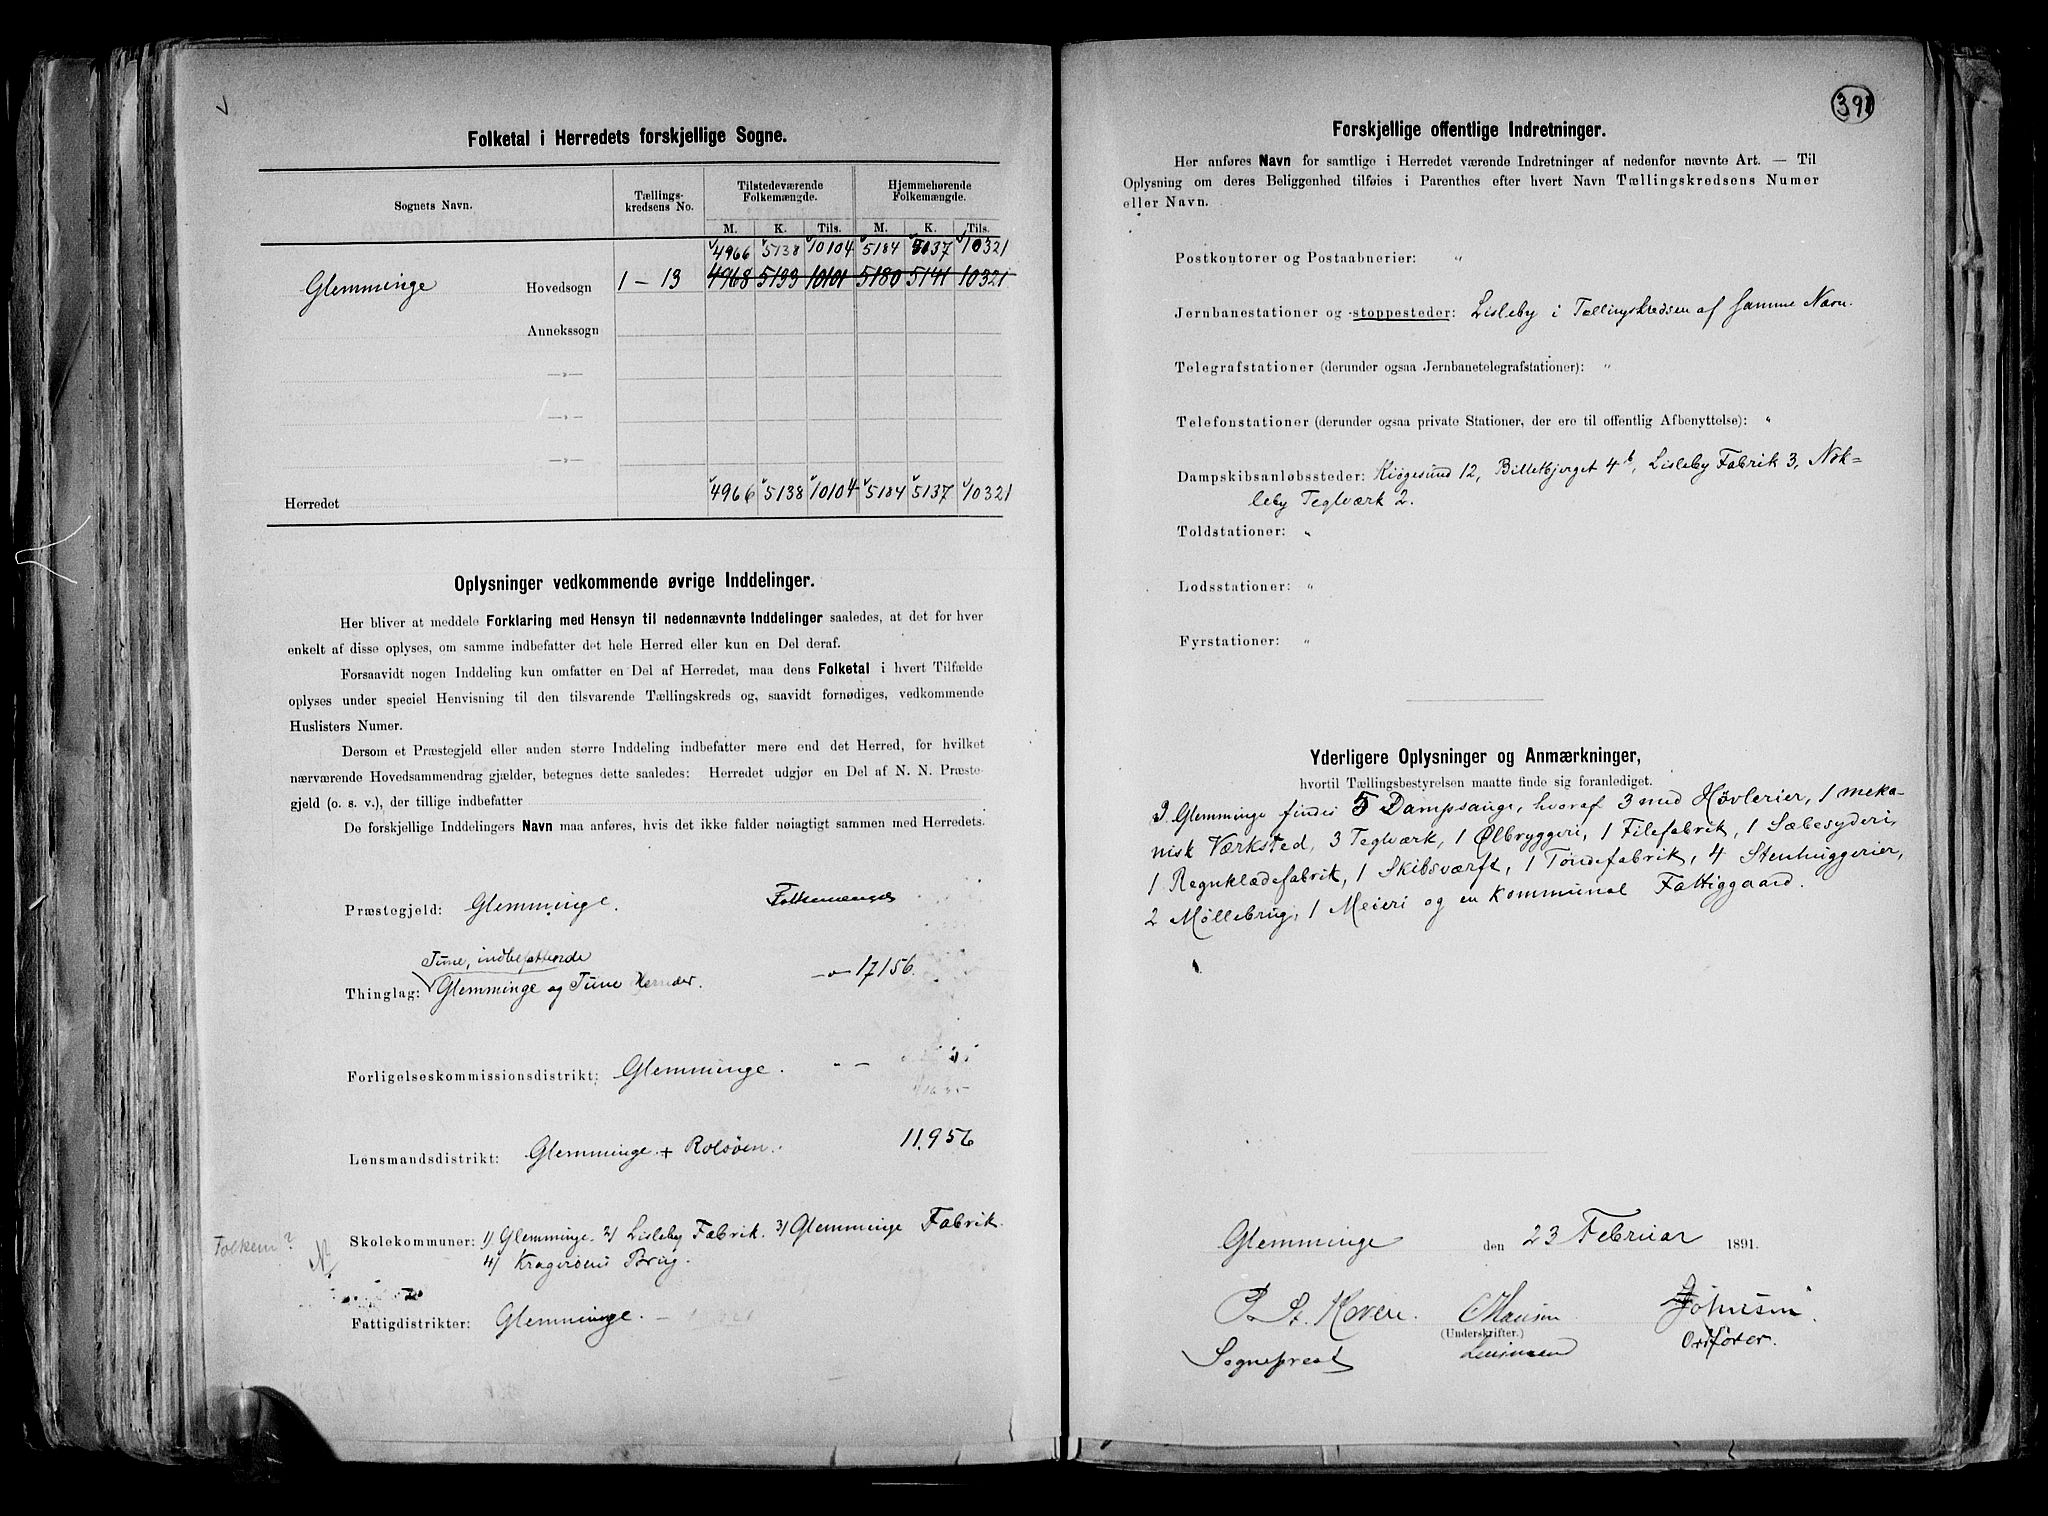 Folketal i Herredets forskjellige Sogne.
Sognets Navn.
Tællings-
kredsens No.
Tilstedeværende
Folkemængde.
Hjemmehørende
Folkemængde.
M. K. Tils. M. K. Tils.
4966 5138 10104 5184 5137 10321
Glemminge Hovedsogn 1 – 13 4968 5133 10101 5180 5141 10321
Annekssogn
—„—
—„—
—„—
Herredet 4966 5138 10104 5184 5137 10321
Oplysninger vedkommende øvrige Inddelinger.
Her bliver at meddele Forklaring med Hensyn til nedennævnte Inddelinger saaledes, at det for hver
enkelt af disse oplyses, om samme indbefatter det hele Herred eller kun en Del deraf.
Forsaavidt nogen Inddeling kun omfatter en Del af Herredet, maa dens Folketal i hvert Tilfælde
oplyses under speciel Henvisning til den tilsvarende Tællingskreds og, saavidt fornødiges, vedkommende
Huslisters Numer.
Dersom et Præstegjeld eller anden større Inddeling indbefatter mere end det Herred, for hvilket
nærværende Hovedsammendrag gjælder, betegnes dette saaledes: Herredet udgjør en Del af N. N. Præste-
gjeld (o. s. v.), der tillige indbefatter
De forskjellige Inddelingers Navn maa anføres, hvis det ikke falder nøiagtigt sammen med Herredets.
Præstegjeld: Glemminge. Folkemængde
Tune, indbefattende
Thinglag: Glemminge og Tune Herreder. —„— 17156.
Forligelseskommissionsdistrikt: Glemminge. „ —
Lensmandsdistrikt: Glemminge + Rolsøen. 11.956
Folkem?
Skolekommuner: 1) Glemminge. 2) Lisleby Fabrik. 3) Glemminge Fabrik.
4) Kragerøens Brug.
Fattigdistrikter: Glemminge. —
391
Forskjellige offentlige Indretninger.
Her anføres Navn for samtlige i Herredet værende Indretninger af nedenfor nævnte Art. — Til
Oplysning om deres Beliggenhed tilføies i Parenthes efter hvert Navn Tællingskredsens Numer
eller Navn.
Postkontorer og Postaabnerier: „
Jernbanestationer og -stoppesteder: Lisleby i Tællingskredsen af samme Navn.
Telegrafstationer (derunder ogsaa Jernbanetelegrafstationer): „
Telefonstationer (derunder ogsaa private Stationer, der ere til offentlig Afbenyttelse): „
Dampskibsanløbssteder: Kjøgesund 12, Billetbjerget 4b, Lisleby Fabrik 3, Nok-
leby Teglværk 2.
Toldstationer: „
Lodsstationer: „
Fyrstationer: „
Yderligere Oplysninger og Anmærkninger,
hvortil Tællingsbestyrelsen maatte finde sig foranlediget.
I Glemminge findes 5 Dampsauge, hvoraf 3 med Høvlerier, 1 meka-
nisk Værksted, 3 Teglværk, 1 Ølbryggeri, 1 Filefabrik, 1 Sæbesyderi,
1 Regnklædefabrik, 1 Skibsværft, 1 Tøndefabrik, 4 Stenhuggerier,
2 Møllebrug, 1 Meieri og en kommunal Fattiggaard.
Glemminge den 23 Februar 1891.
P. St. Koren. OHansen Johnsen
(Underskrifter.)
Sogneprest Lensmand Ordfører.